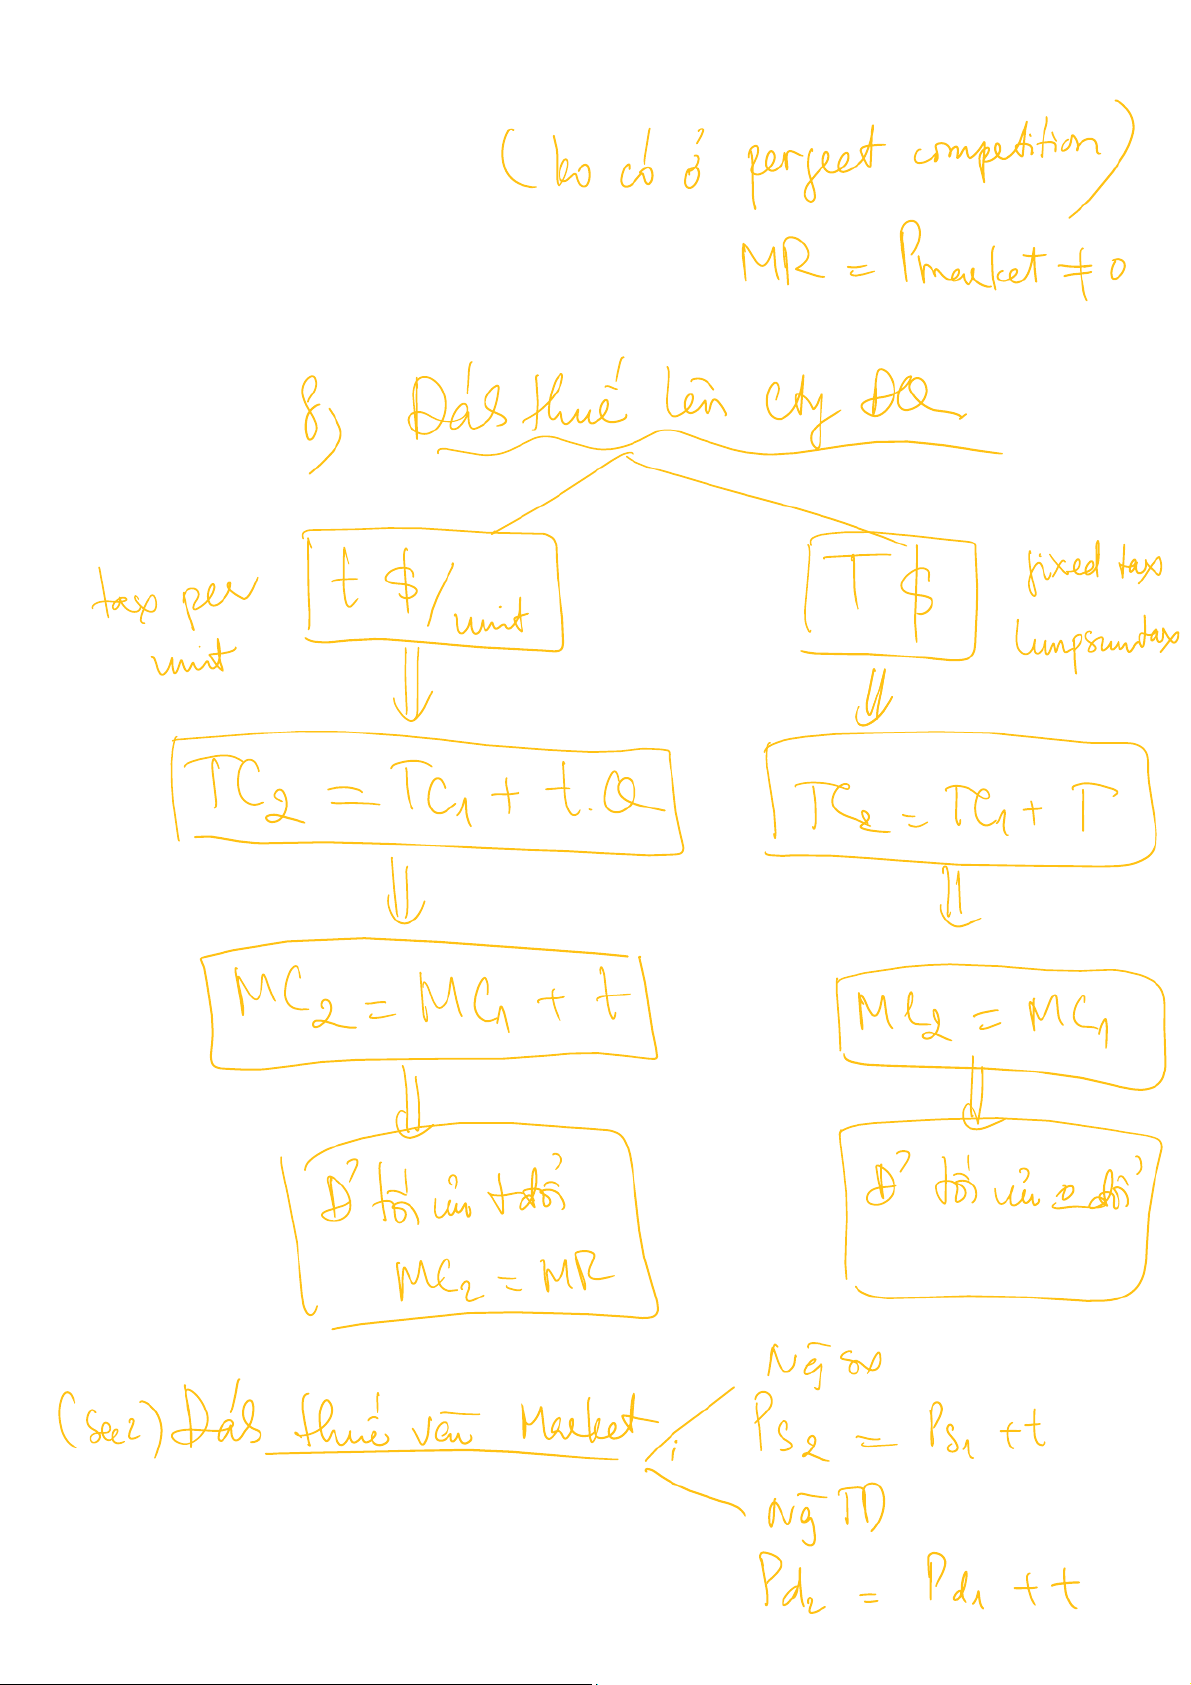 (ko có ở perfect competition)
MR = Pmarket ≠ 0
8) Đánh thuế lên cty ĐQ
tax per unit
t $/unit
T $
fixed tax
lumpsumtax
TC₂ = TC₁ + t.Q
TC₂ = TC₁ + T
MC₂ = MC₁ + t
MC₂ = MC₁
Đ' tối ưu tđổi
MC₂ = MR
Đ' tối ưu o đổi
(sec2) Đánh thuế vào Market
Ng̃ sx
Ps₂ = Ps₁ + t
Ng̃ TD
Pd₂ = Pd₁ + t